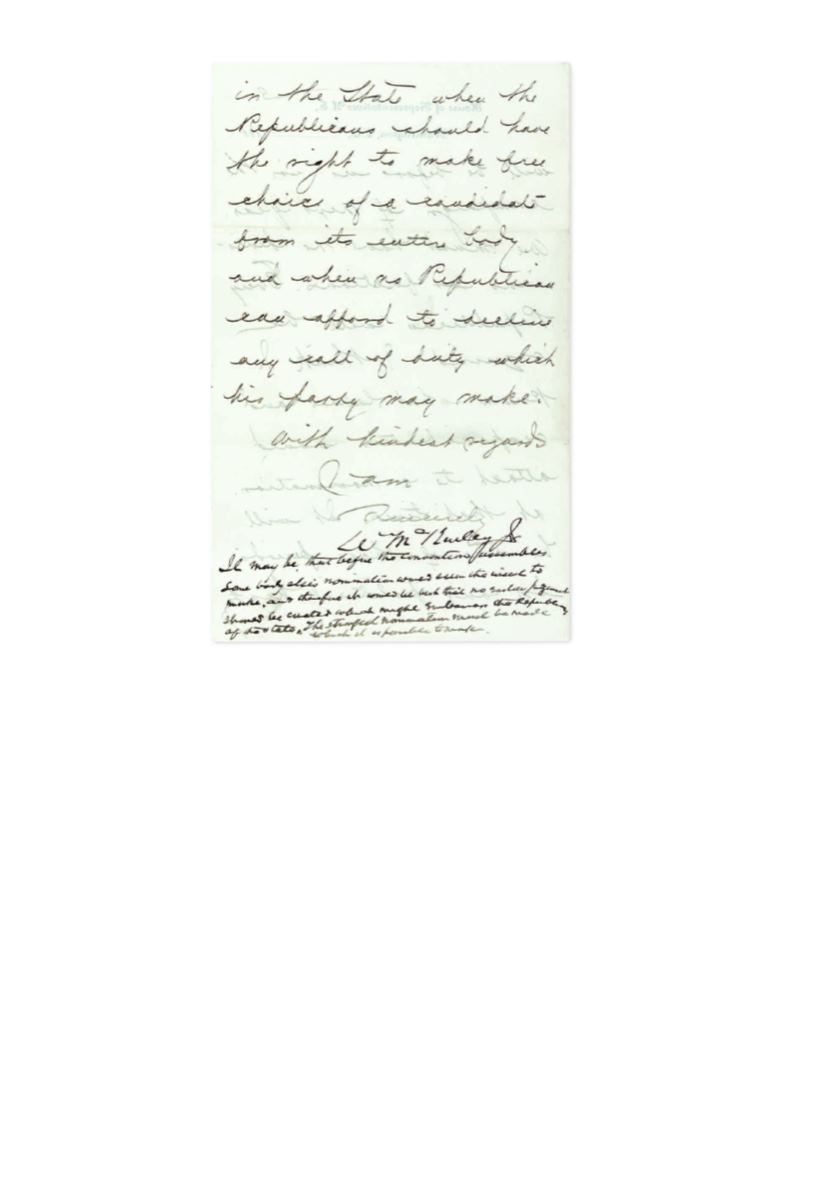 in the State when the
Republicans should have
the right to make free
choice of a candidate
from its entire body
and when no Republican
can afford to decline
any call of duty which
his party may make.
With kindest regards
I am
Sincerely
Wm McKinley Jr
It may be, that before the Convention assembles
some body else's nomination would seem the wisest to
make, and therefore it would be best that no
should be created which might embarrass the Republicans
of the State. The strongest nomination must be made
which it is possible to make.